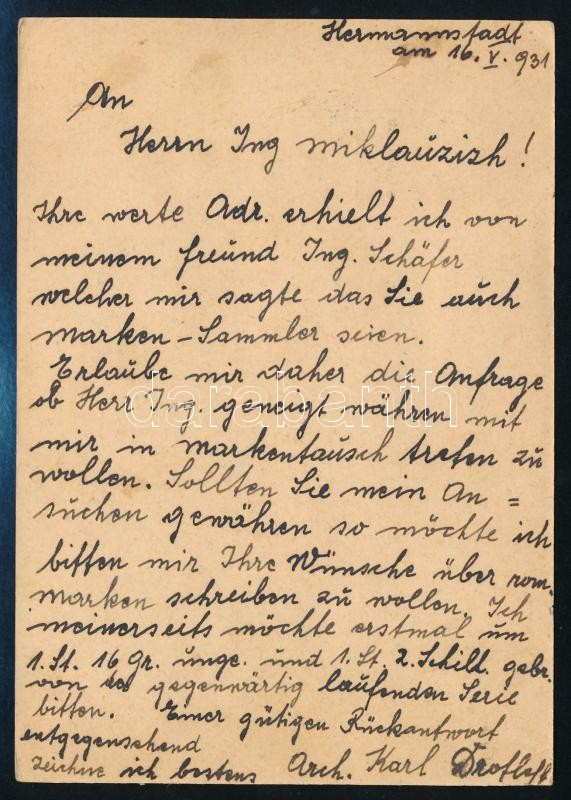 Hermannstadt
am 16. V. 931
An
Herrn Ing Miklauzizh!
Ihre werte Adr. erhielt ich von
meinem freund Ing. Schäfer
welcher mir sagte das Sie auch
marken-Sammler seien.
Erlaube mir daher die Anfrage
ob Herr Ing. geneigt währen mit
mir in markentausch trefen zu
wollen. Sollten Sie mein An=
suchen gewähren so möchte ich
bitten mir Ihre Wünsche über rom.
marken schreiben zu wollen. Ich
meinerseits möchte erstmal um
1. St. 16 Gr. unge. und 1. St. 2. Schill. gebr.
von gegenwärtig laufenden Serie
bitten. Einer gütigen Rückantwort
entgegensehend
zeichne ich bestens Arch. Karl
darabanth